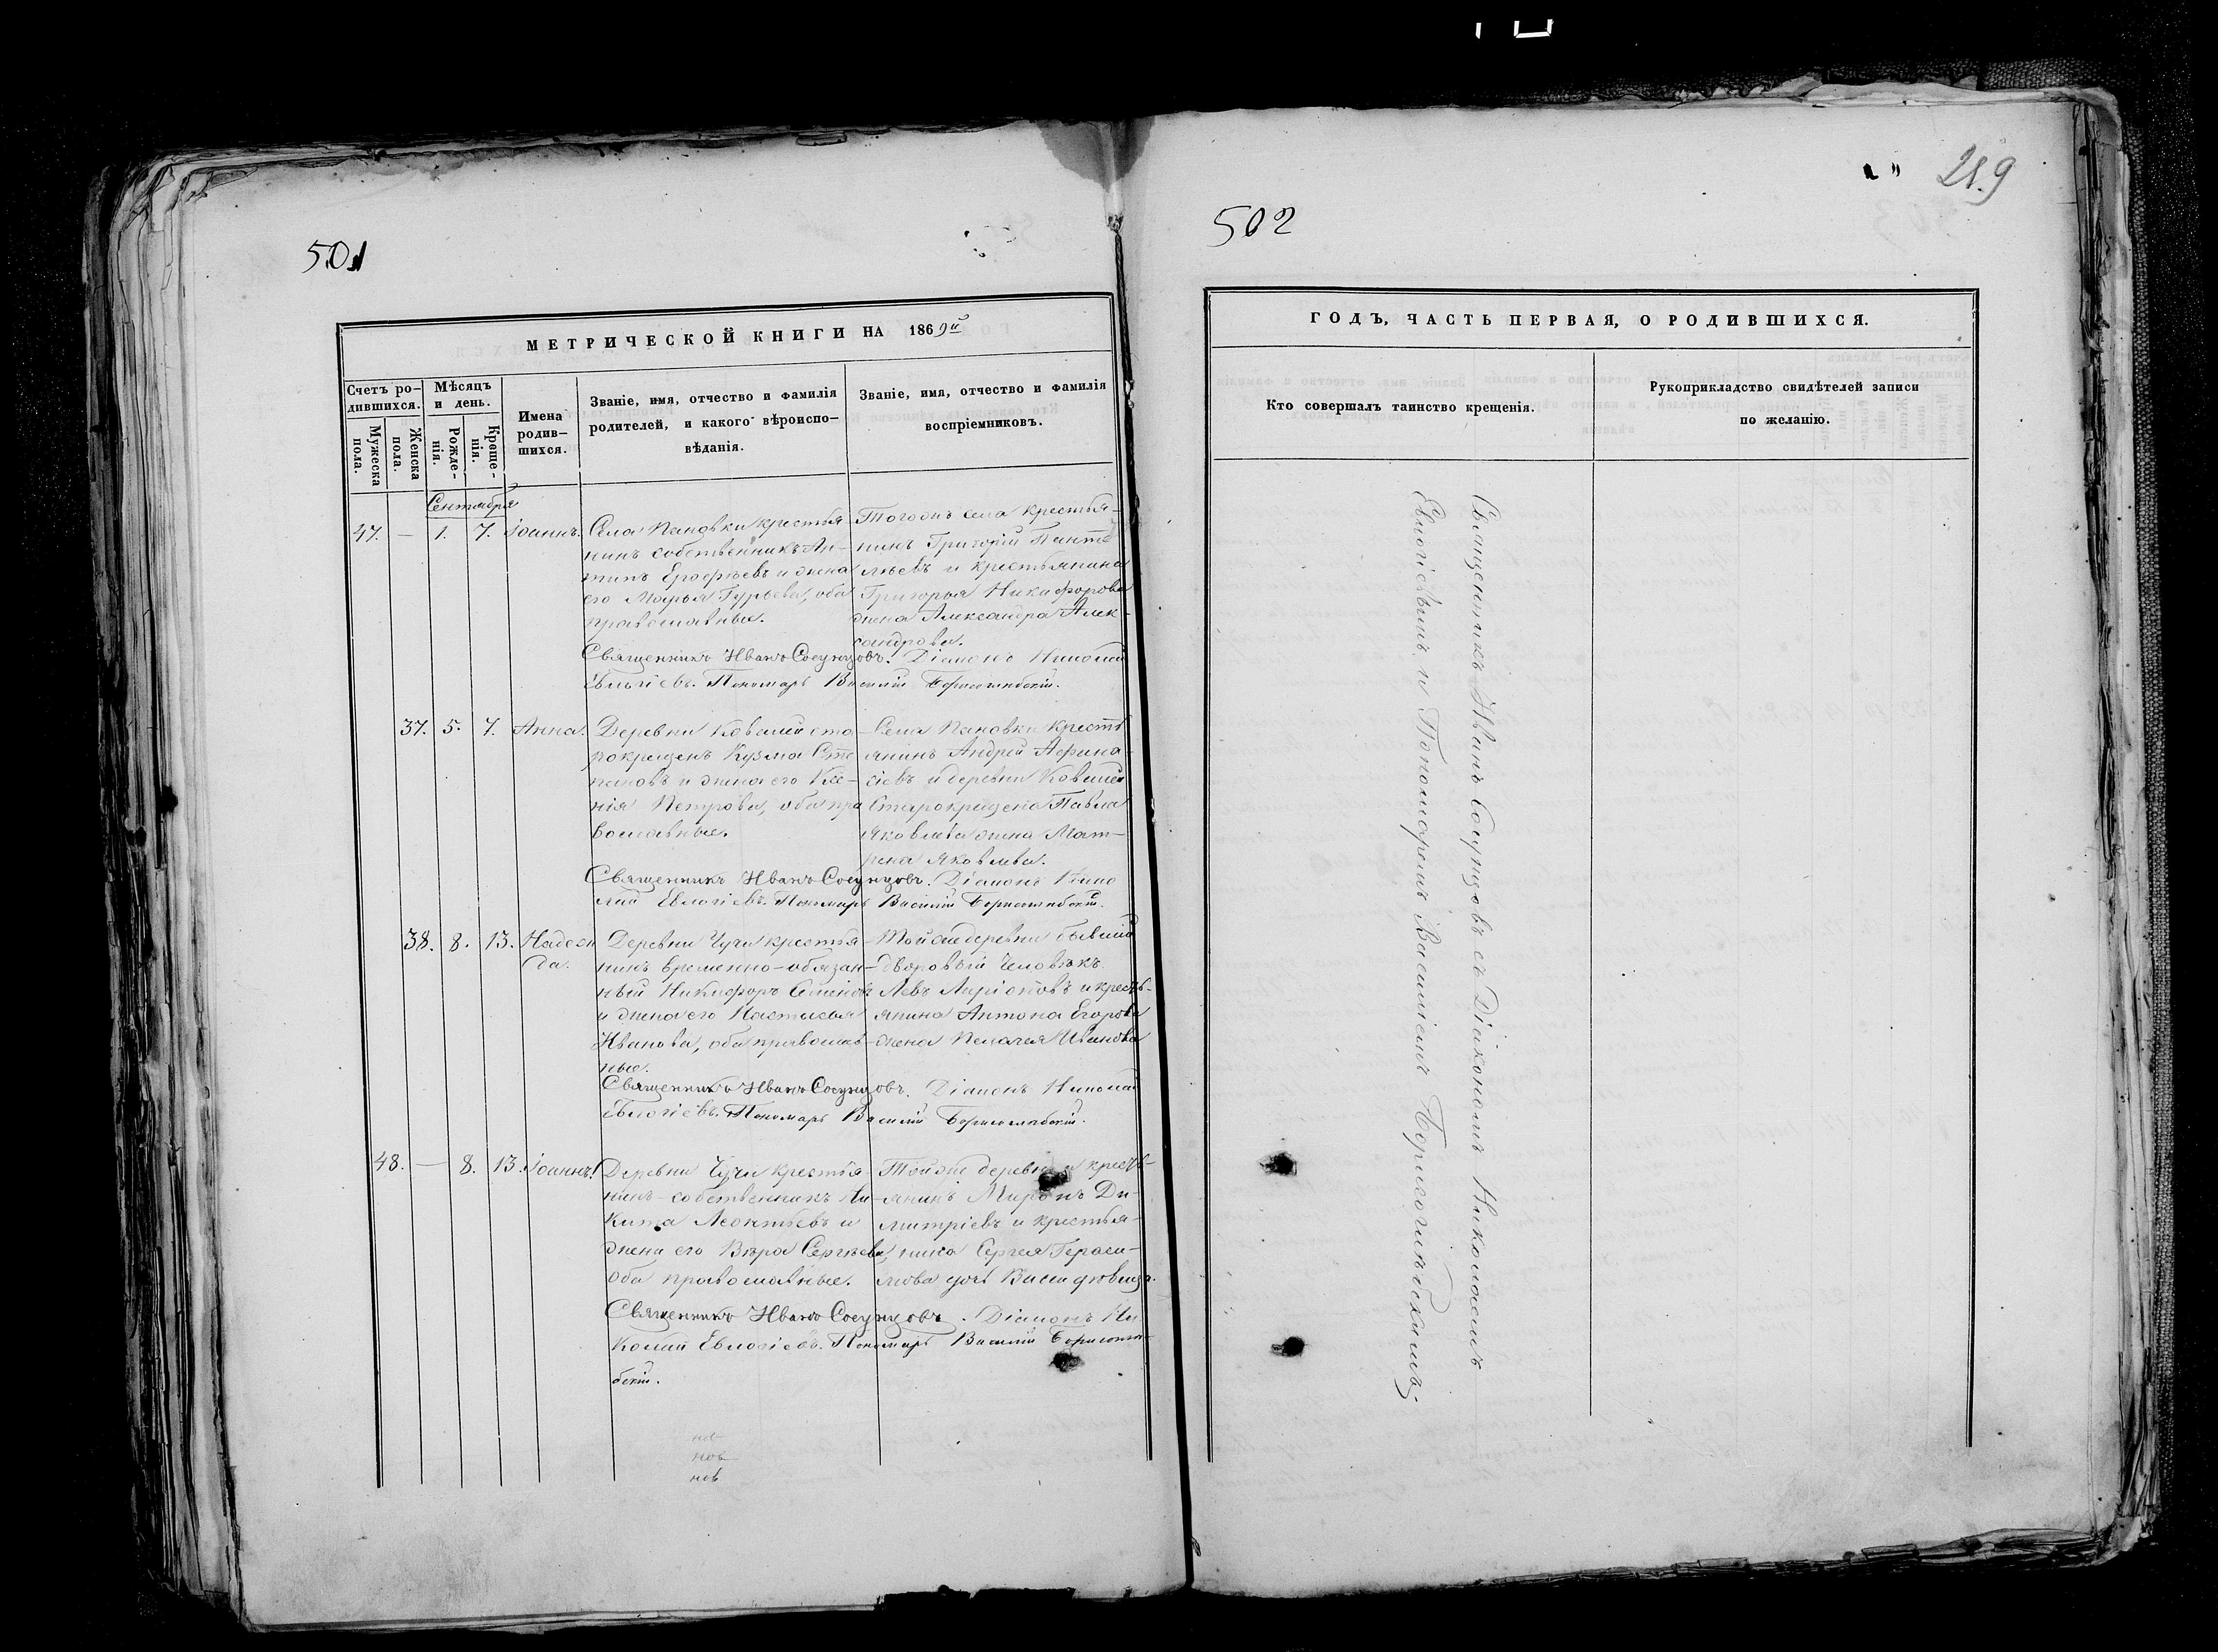 501
МЕТРИЧЕСКОЙ КНИГИ НА 1869й
Счетъ ро-
дившихся.
Мужеска
пола.
Женска
пола.
Мѣсяцъ
и день.
Рожде-
нія.
Креще-
нія.
Имена
родив-
шихся.
Званіе, имя, отчество и фамилія
родителей, и какого вѣроиспо-
вѣданія.
Званіе, имя, отчество и фамилія
воспріемниковъ.
Сентября
47. — 1. 7. Іоаннъ.
Села Пановки крестья-
нинъ собственникъ Ан-
типъ Ерофѣевъ и жена
его Марья Гурьева, оба
православные.
Тогожъ села крестья-
нинъ Григорій Панте-
лѣевъ и крестьянина
Григорья Никифорова
жена Александра Алек-
сандрова.
Священникъ Иванъ Сосунцовъ. Діаконъ Николай
Евлогіевъ. Пономарь Василій Борисоглѣбскій.
37. 5. 7. Анна.
Деревни Ковалей ста-
рокрещенъ Кузма Сте-
пановъ и жена его Ксе-
нія Петрова, оба пра-
вославные.
Села Пановки кресть-
янинъ Андрей Афана-
сіевъ и деревни Ковалей
старокрещена Павла
Яковлева жена Мат-
рена Яковлева.
Священникъ Иванъ Сосунцовъ. Діаконъ Нико-
лай Евлогіевъ. Пономарь Василій Борисоглѣбскій.
38. 8. 13. Надеж-
да.
Деревни Чучи крестья-
нинъ временно-обязан-
ный Никифоръ Семеновъ
и жена его Настасья
Иванова, оба православ-
ные.
Той же деревни бывшій
дворовый человѣкъ
Левъ Ларіоновъ и кресть-
янина Антона Егорова
жена Пелагея Иванова
Священникъ Иванъ Сосунцовъ. Діаконъ Николай
Евлогіевъ. Пономарь Василій Борисоглѣбскій.
48. — 8. 13. Іоаннъ.
Деревни Чучи крестья-
нинъ-собственникъ Ни-
кита Леонтьевъ и
жена его Вѣра Сергѣева,
оба православные.
Той же деревни кресть-
янинъ Миронъ Ди-
митріевъ и крестья-
нина Сергея Гераси-
мова дочь
Священникъ Иванъ Сосунцовъ. Діаконъ Ни-
колай Евлогіевъ. Пономарь Василій Борисоглѣ-
бскій.
нов
нов
219
502
ГОДЪ, ЧАСТЬ ПЕРВАЯ, О РОДИВШИХСЯ.
Кто совершалъ таинство крещенія.
Рукоприкладство свидѣтелей записи
по желанію.
Священникъ Иванъ Сосунцовъ съ Діакономъ Николаемъ
Евлогіевымъ и Пономаремъ Василіемъ Борисоглѣбскимъ.